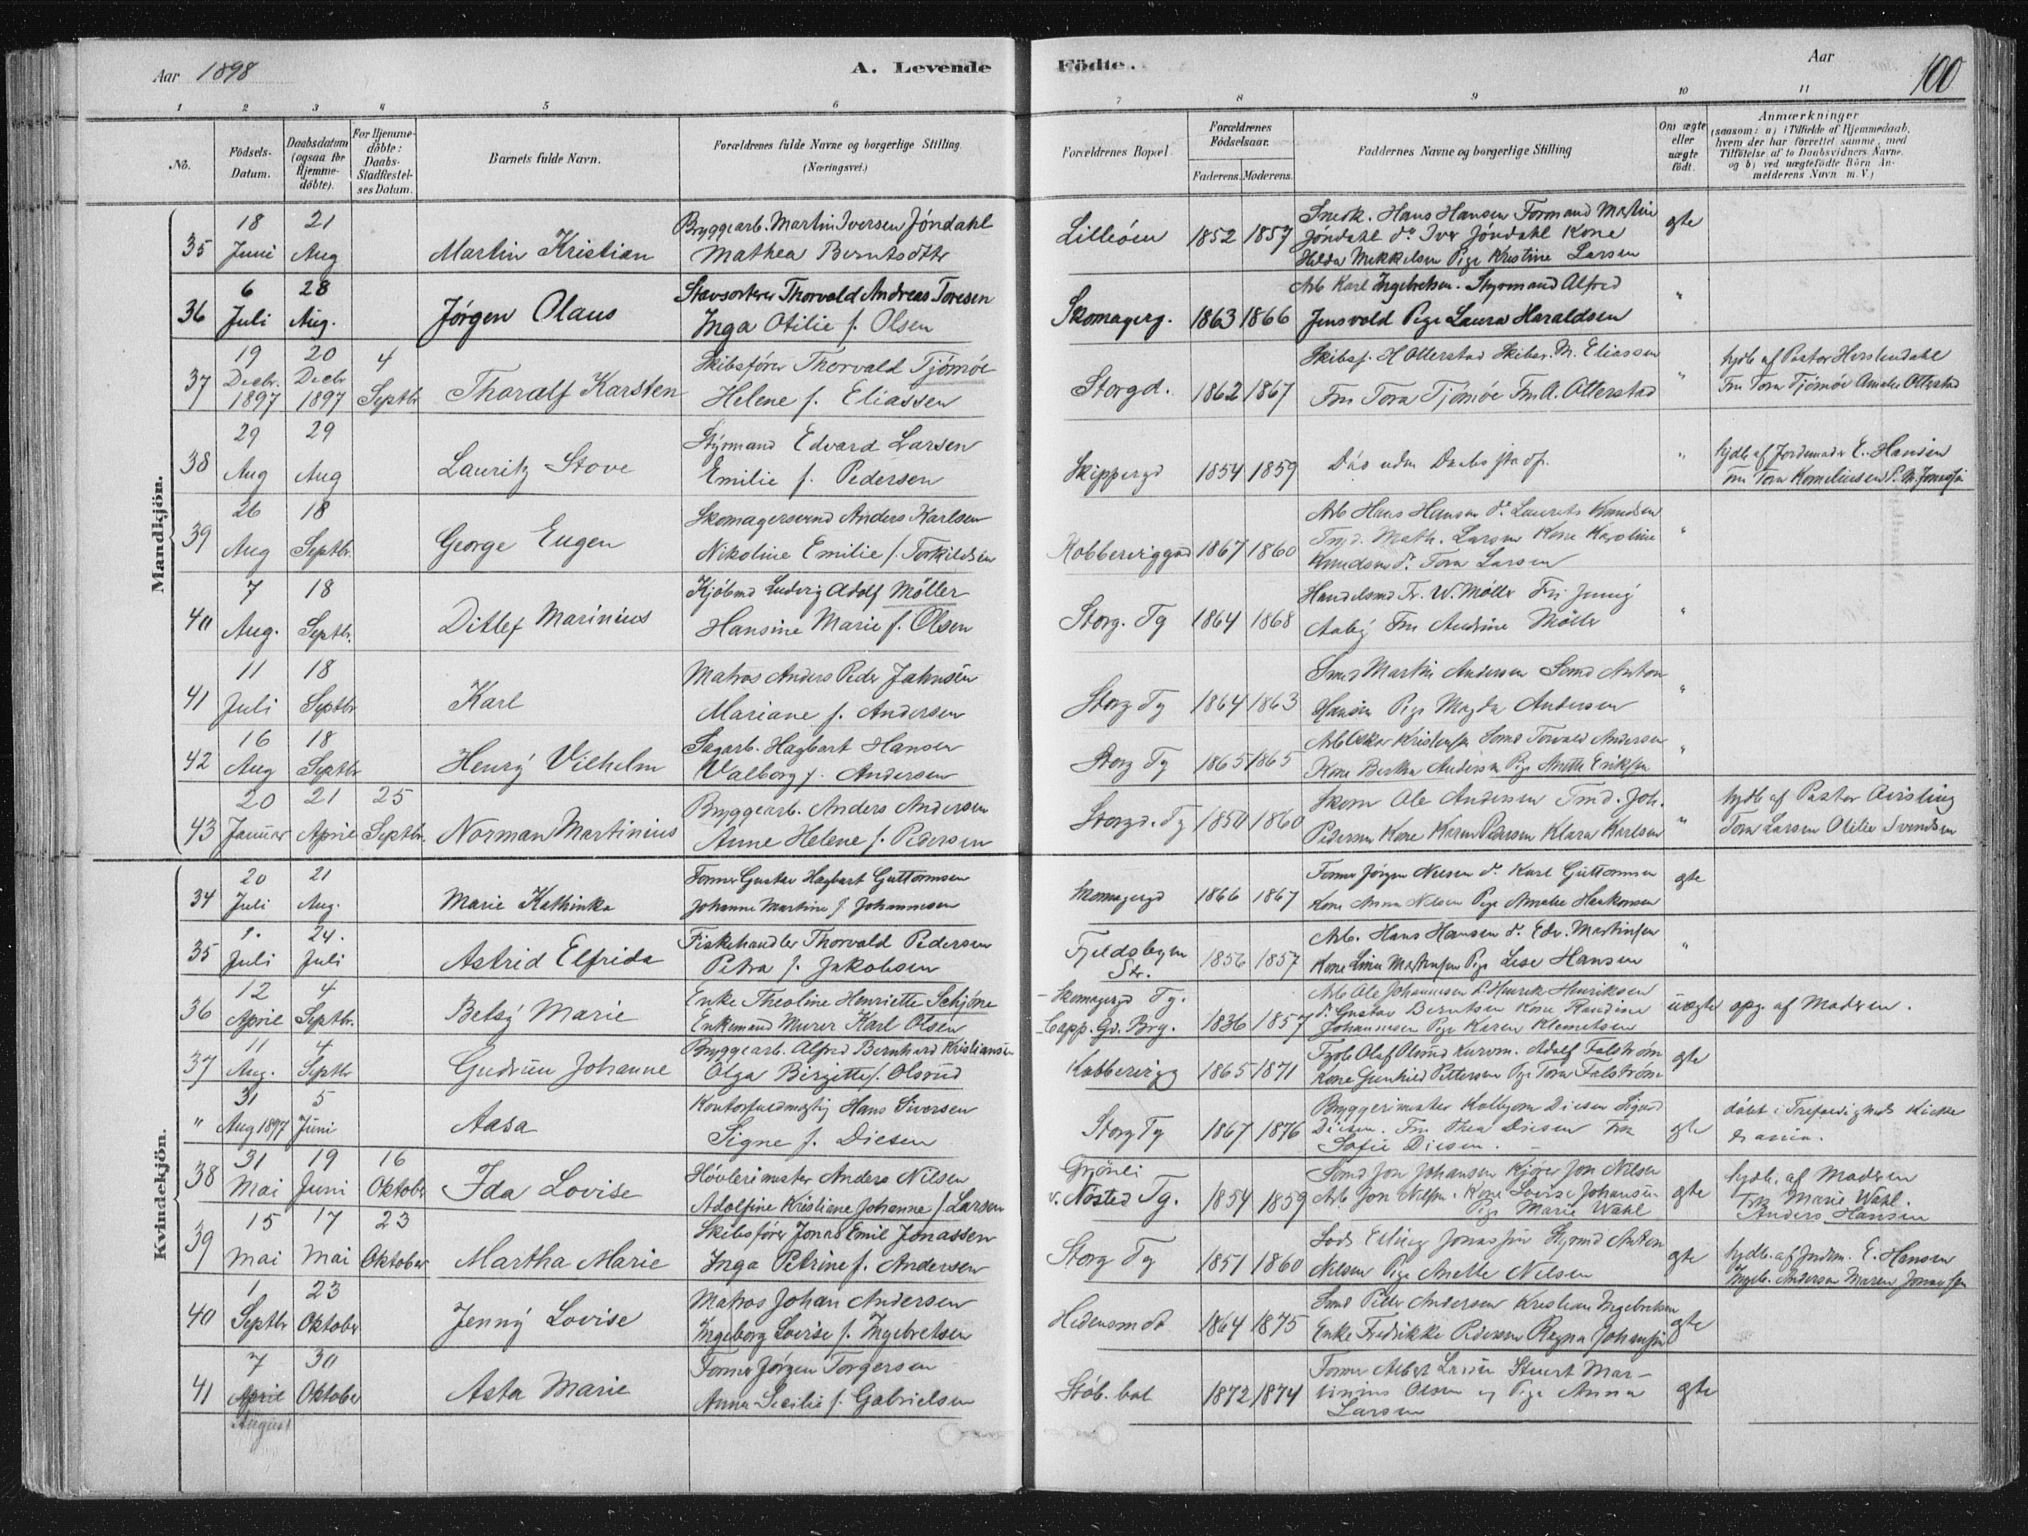 Aar 1898
A. Levende Födte.
Aar
100
1 2 3 4 5 6 7 8 9 10 11
No.
Födsels-Datum.
Daabsdatum (ogsaa for Hjemme-döbte).
For Hjemme-döbte: Daabs-Stadfæstel-ses Datum.
Barnets fulde Navn.
Forældrenes fulde Navne og borgerlige Stilling (Næringsvei.)
Forældrenes Bopæl.
Forældrenes Födselsaar.
Faderens. Moderens.
Faddernes Navne og borgerlige Stilling
Om ægte eller uægte födt.
Anmærkninger
(saasom: a) i Tilfælde af Hjemmedaab, hvem der har forrettet samme, med Tilföielse af to Daabsvidners Navne. og b) ved uægtefödte Börn An-melderens Navn m. V.)
Mandkjön.
35 18 Juni 21 Aug Martin Kristian Bryggearb. Martin Iversen Jöndahl Mathea Berntsdtr Lilleöen 1852 1857 Snedk. Hans Hansen Formand Martin Jöndahl do Iver Jöndahl Kone Hilda Mikkelsen Pige Kristine Larsen gte
36 6 Juli 28 Aug. Jørgen Olaus Stavsorterer Thorvald Andreas Toresen Inga Otilie f. Olsen Skomagerg. 1863 1866 Arb Karl Ingebretsen. Styrmand Alfred Jensvold Pige Laura Haraldsen "
37 19 Decbr. 1897 20 Decbr 1897 4 Septbr Thoralf Karsten Skibsfører Thorvald Tjömöe Helene f. Eliassen Storgd. 1862 1867 Skibsf. H Otterstad Skibsr. M. Eliassen Fru Tora Tjömöe Fru A. Otterstad " hjdb af Pastor Fru Tora Tjömöe Amalie Otterstad
38 29 Aug 29 Aug Lauritz Stove Styrmand Edvard Larsen Emilie f. Pedersen Skippergd 1854 1859 Död uden Daabsstadf. " hjdb af Jordemoder E. Hansen Fru Tora Korneliussen
39 26 Aug 18 Septbr. George Eugen Skomagersvend Anders Karlsen Nikoline Emilie f. Torkildsen Kobberviggad 1867 1860 Arb Hans Hansen do Laurits Knudsen Math. Larsen Kone Karoline Knudsen do Tora Larsen "
40 7 Aug. 18 Septbr. Ditlef Marinius Kjöbmd Ludvig Adolf Möller Hansine Marie f. Olsen Storg. Tg 1864 1868 Handelsmd Fr. W. Möller Frk Jenny Aaby Fru Andrine Möller "
41 11 Juli 18 Septbr Karl Matros Anders Peder Jahnsen Mariane f. Andersen Storg Tg 1864 1863 Smd Martin Andersen Sømd Anton Hansen Pige Magda Andersen "
42 16 Aug 18 Septbr Henry Vilhelm Sagarb. Hagbart Hansen Valborg f. Andersen Storg Tg 1865 1865 Arb Oskar Kristensen Sømd Torvald Andersen Kone Bertha Andersen Pige Anette Eriksen "
43 20 Januar 21 April 25 Septbr. Norman Martinius Bryggearb. Anders Andersen Anne Helene f. Pedersen Storgd. Tg 1850 1860 Skom Ole Andersen Tmd. Joh. Pedersen Kone Karen Pedersen Klara Karlsen " hjdb af Pastor Tora Larsen Otilie Svendsen
Kvindekjön.
34 20 Juli 21 Aug. Marie Kathinka Former Gustav Hagbart Guttormsen Johanne Martine f. Johannesen Skomagergd 1866 1867 Former Jørgen Nilsen do Karl Guttormsen Kone Anna Nilsen Pige Amalie Haakonsen gte
35 9. Juli 24. Juli Astrid Elfrida Fiskehandler Thorvald Pedersen Petra f. Jakobsen Fjeldsbyen Str. 1856 1857 Arb. Hans Hansen do Edv. Martinsen Kone Line Martinsen Pige Lise Hansen "
36 12 April 4 Septbr. Betsy Marie Enke Theoline Henriette Schjöne Enkemand Murer Karl Olsen Skomagergd Tg. Capp. Gd. Brg. 1836 1857 Arb Ole Johannesen do Henrik Henriksen do Gustav Berntsen Kone Randine Johannesen Pige Karen Klemetsen uægte opg. af Modren.
37 11 Aug. 4 Septbr Gudrun Johanne Bryggearb. Alfred Bernhard Kristiansen Olga Birgitte f. Olsrud Kobbervigg 1865 1871 Olaf Olsrud Kurvm. Adolf Falström Kone Gunhild Pettersen Pige Tora Falström gte
" 31 Aug 1897 5 Juni Aasa Kontorfuldmægtig Hans Siversen Signe f. Diesen Storg Tg 1867 1876 Bryggerimester Kolbjørn Diesen Sigurd Diesen. Fru Thea Diesen Frk Sofie Diesen. gte döbt i Trefoldigheds Kirke Xania.
38 31 Mai 19 Juni 16 Oktober Ida Lovise Høvlerimester Anders Nilsen Adolfine Kristiane Johanne f. Larsen Grjönli v. Nösted Tg. 1854 1859 Sømd Jon Johansen Kjörer Jon Nilsen Arb. Jon Nilsen. Kone Lovise Johansen Pige Marie Wahl gte hjdb. af Modren Frk Marie Wahl. Anders Hansen
39 15 Mai 17 Mai 23 Oktober Martha Marie Skibsfører Jonas Emil Jonassen Inga Petrine f. Andersen Storg Tg 1851 1860 Lods Erling Jonassen Styrmd Anton Nilsen Pige Anette Nilsen gte hjdb. af Jordm. E. Hansen Ingeb. Andersen Maren Jonassen
40 1 Septbr 23 Oktober Jenny Lovise Matros Johan Andersen Ingeborg Lovise f. Ingebretsen Hedensmdt 1864 1875 Sømd Peder Andersen Kristian Ingebretsen Enke Fredrikke Pedersen Regna Johansen gte
41 7 April August 30 Oktober Asta Marie Former Jørgen Torgersen Anna Secilie f. Gabrielsen Støb. bol 1872 1874 Former Albert Larsen Stuert Mar-tinius Olsen og Pige Anna Larsen gte